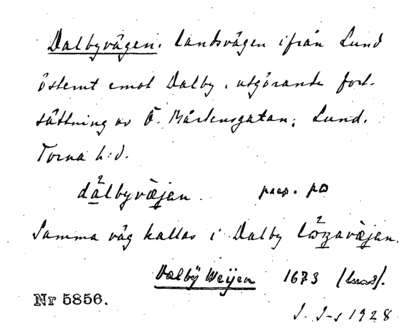 Dalbyvägen, landsvägen ifrån Lund
österut emot Dalby, utgörande fort-
sättning av Ö. Mårtensgatan, Lund.
Torna h:d.
dalbyvæjen pasp. på
Samma väg kallas i Dalby
Dalbÿ Weijen 1673
Nr 5856.
1928